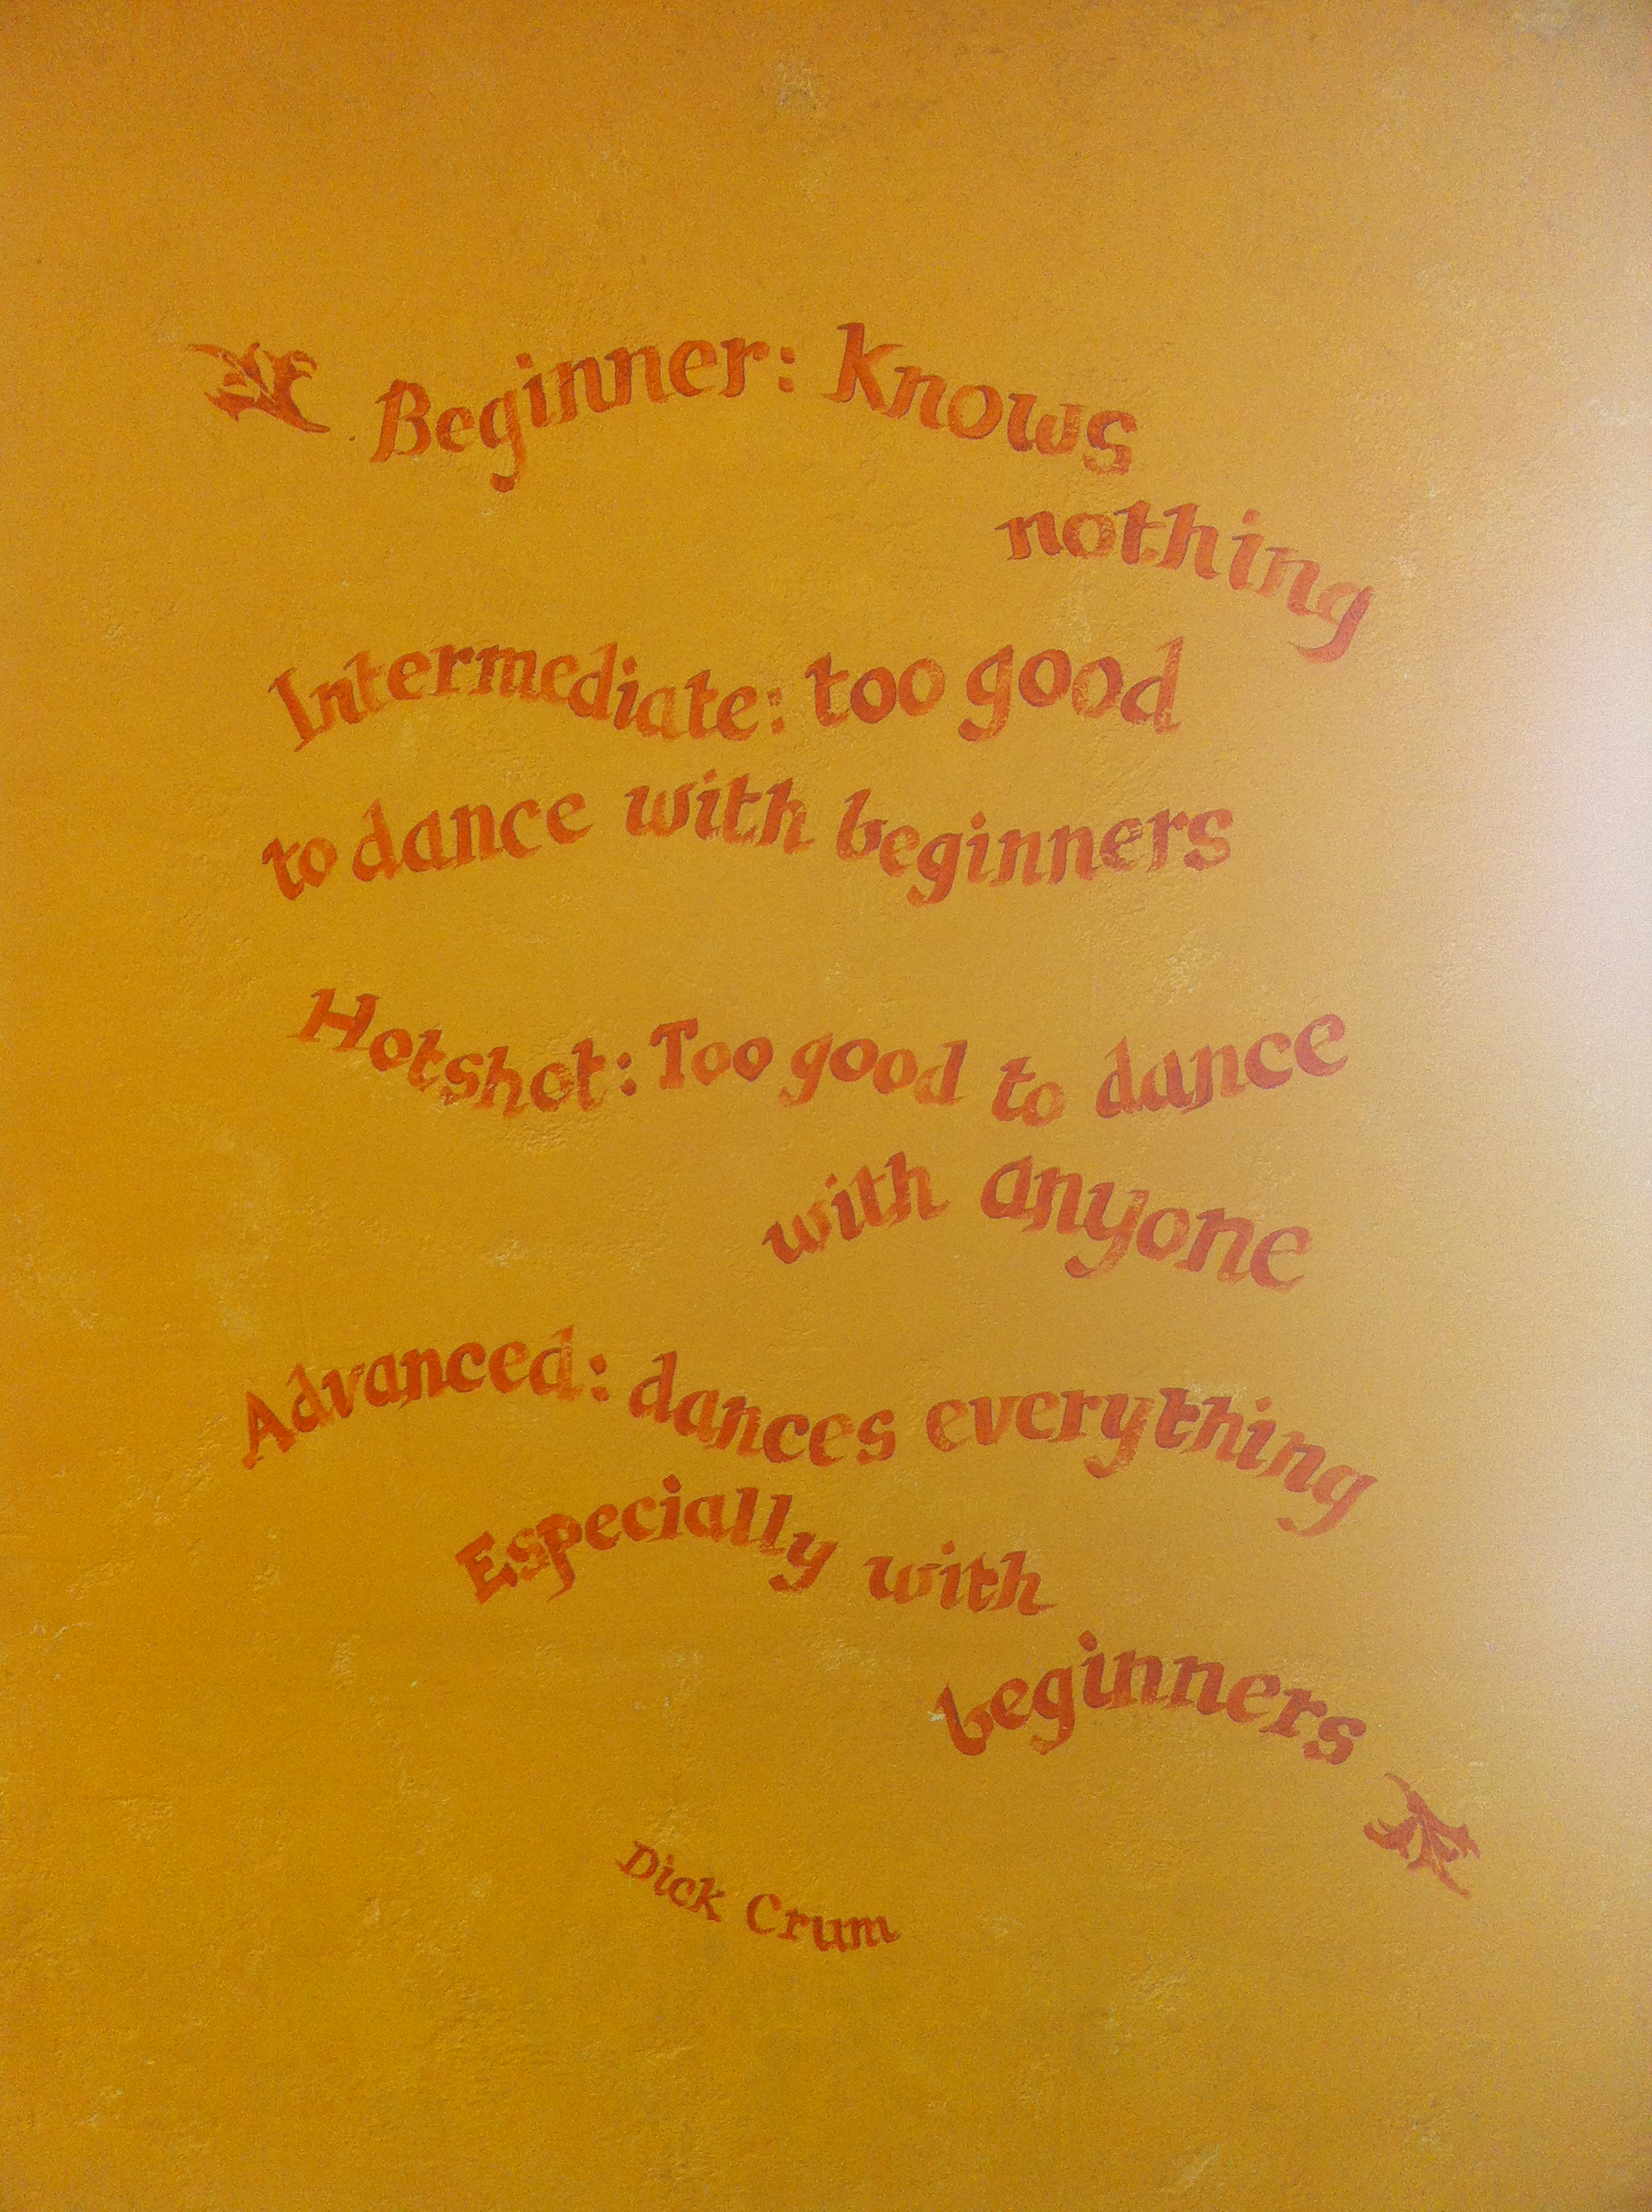 Beginner: Knows
nothing
Intermediate: too good
to dance with beginners
Hotshot: Too good to dance
with anyone
Advanced: dances everything
Especially with
beginners
Dick Crum